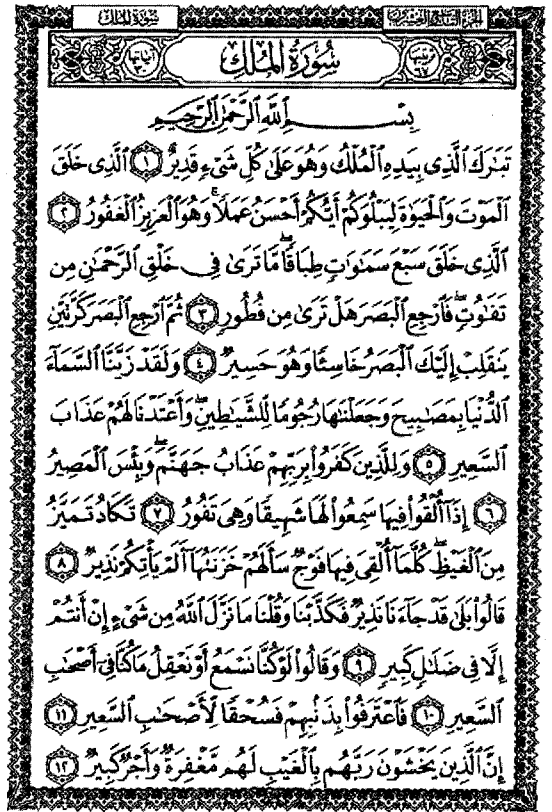 الجزء التاسع والعشرون سورة الملك
ترتيبها ٦٧ سورة الملك آياتها ٣٠
بِسْمِ اللَّهِ الرَّحْمَٰنِ الرَّحِيمِ
تَبَٰرَكَ ٱلَّذِى بِيَدِهِ ٱلْمُلْكُ وَهُوَ عَلَىٰ كُلِّ شَىْءٍ قَدِيرٌ ١ ٱلَّذِى خَلَقَ
ٱلْمَوْتَ وَٱلْحَيَوٰةَ لِيَبْلُوَكُمْ أَيُّكُمْ أَحْسَنُ عَمَلًا ۚ وَهُوَ ٱلْعَزِيزُ ٱلْغَفُورُ ٢
ٱلَّذِى خَلَقَ سَبْعَ سَمَٰوَٰتٍ طِبَاقًا ۖ مَّا تَرَىٰ فِى خَلْقِ ٱلرَّحْمَٰنِ مِن
تَفَٰوُتٍ ۖ فَٱرْجِعِ ٱلْبَصَرَ هَلْ تَرَىٰ مِن فُطُورٍ ٣ ثُمَّ ٱرْجِعِ ٱلْبَصَرَ كَرَّتَيْنِ
يَنقَلِبْ إِلَيْكَ ٱلْبَصَرُ خَاسِئًا وَهُوَ حَسِيرٌ ٤ وَلَقَدْ زَيَّنَّا ٱلسَّمَآءَ
ٱلدُّنْيَا بِمَصَٰبِيحَ وَجَعَلْنَٰهَا رُجُومًا لِّلشَّيَٰطِينِ ۖ وَأَعْتَدْنَا لَهُمْ عَذَابَ
ٱلسَّعِيرِ ٥ وَلِلَّذِينَ كَفَرُوا۟ بِرَبِّهِمْ عَذَابُ جَهَنَّمَ ۖ وَبِئْسَ ٱلْمَصِيرُ
٦ إِذَآ أُلْقُوا۟ فِيهَا سَمِعُوا۟ لَهَا شَهِيقًا وَهِىَ تَفُورُ ٧ تَكَادُ تَمَيَّزُ
مِنَ ٱلْغَيْظِ ۖ كُلَّمَآ أُلْقِىَ فِيهَا فَوْجٌ سَأَلَهُمْ خَزَنَتُهَآ أَلَمْ يَأْتِكُمْ نَذِيرٌ ٨
قَالُوا۟ بَلَىٰ قَدْ جَآءَنَا نَذِيرٌ فَكَذَّبْنَا وَقُلْنَا مَا نَزَّلَ ٱللَّهُ مِن شَىْءٍ إِنْ أَنتُمْ
إِلَّا فِى ضَلَٰلٍ كَبِيرٍ ٩ وَقَالُوا۟ لَوْ كُنَّا نَسْمَعُ أَوْ نَعْقِلُ مَا كُنَّا فِىٓ أَصْحَٰبِ
ٱلسَّعِيرِ ١٠ فَٱعْتَرَفُوا۟ بِذَنۢبِهِمْ فَسُحْقًا لِّأَصْحَٰبِ ٱلسَّعِيرِ ١١
إِنَّ ٱلَّذِينَ يَخْشَوْنَ رَبَّهُم بِٱلْغَيْبِ لَهُم مَّغْفِرَةٌ وَأَجْرٌ كَبِيرٌ ١٢